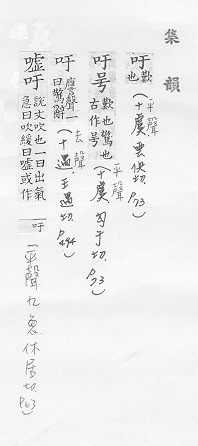 集韻
吁 歎也
(平聲 十虞 雲俱切. P.73)
吁号 歎也驚也古作号
(平聲 十虞 匈于切. P.73)
吁 應聲一曰驚辭
(去聲 十遇. 王遇切. P.494)
噓吁 說文吹也一曰出氣急曰吹緩曰噓或作吁
(平聲 九魚 休居切. P.63)